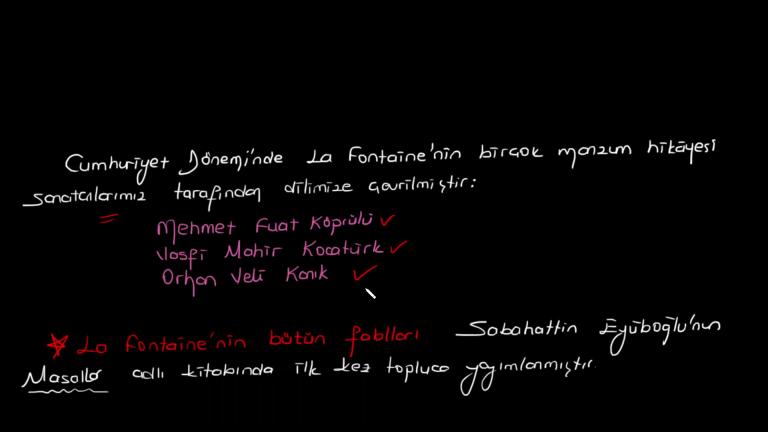 Cumhuriyet Dönemi'nde La Fontaine'nin birçok manzum hikâyesi
sanatçılarımız tarafından dilimize çevrilmiştir:
Mehmet Fuat Köprülü ✓
Vasfi Mahir Kocatürk ✓
Orhan Veli Kanık ✓
La Fontaine'nin bütün fablları Sabahattin Eyüboğlu'nun
Masallar adlı kitabında ilk kez topluca yayımlanmıştır.